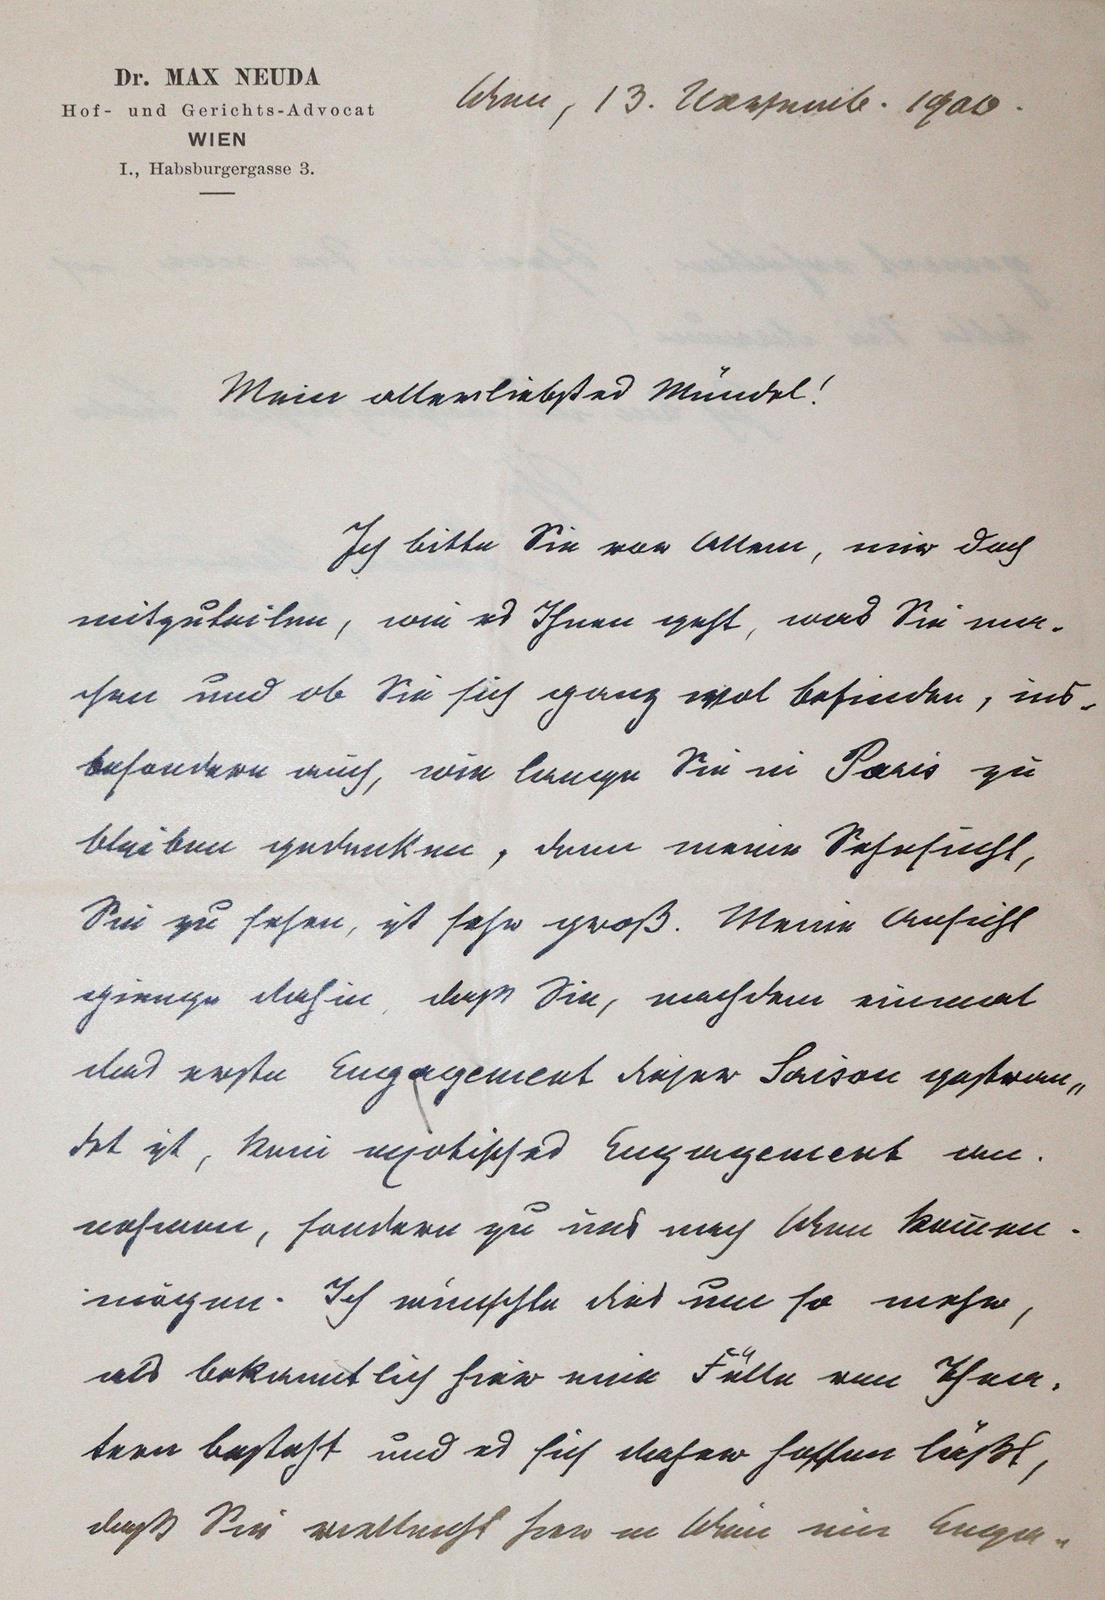 Dr. MAX NEUDA
Hof- und Gerichts-Advocat
WIEN
I., Habsburgergasse 3.
Wien, 13. Novemb. 1900.
Mein allerliebstes Mündel!
Ich bitte Sie vor Allem, mir doch
mitzuteilen, wie es Ihnen geht, was Sie ma-
chen und ob Sie sich ganz wol befinden, ins-
besondere auch, wie lange Sie in Paris zu
bleiben gedenken, denn meine Sehnsucht,
Sie zu sehen, ist sehr groß. Meine Ansicht
gienge dahin, daß Sie, nachdem einmal
das erste Engagement dieser Saison gestran-
det ist, kein exotisches Engagement an-
nehmen, sondern zu uns nach Wien kommen
mögen. Ich wünschte dies um so mehr,
als bekanntlich hier eine Fülle von Thea-
tern besteht und es sich daher hoffen läßt,
daß Sie vielleicht hier in Wien ein Enga-